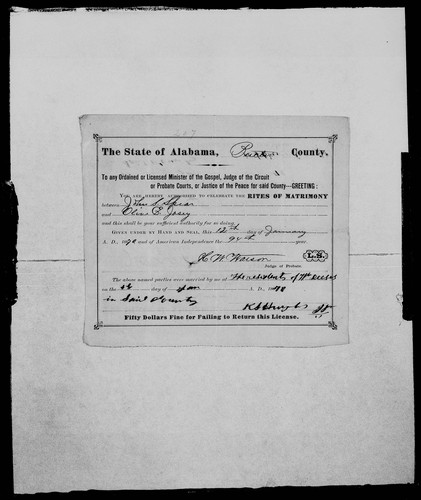 The State of Alabama, County.
To any Ordained or Licensed Minister of the Gospel, Judge of the Circuit
or Probate Courts, or Justice of the Peace for said County—GREETING:
YOU ARE HEREBY AUTHORIZED TO CELEBRATE THE RITES OF MATRIMONY
between John S. Spear
and Olive E. Josey
and this shall be your sufficient authority for so doing.
GIVEN UNDER MY HAND AND SEAL, this 12th day of January
A. D. and of American Independence the year.
H. W. Watson L. S.
Judge of Probate
The above named parties were married by me at of
on the day of Jan A. D. 18
in Said County
Fifty Dollars Fine for Failing to Return this License.